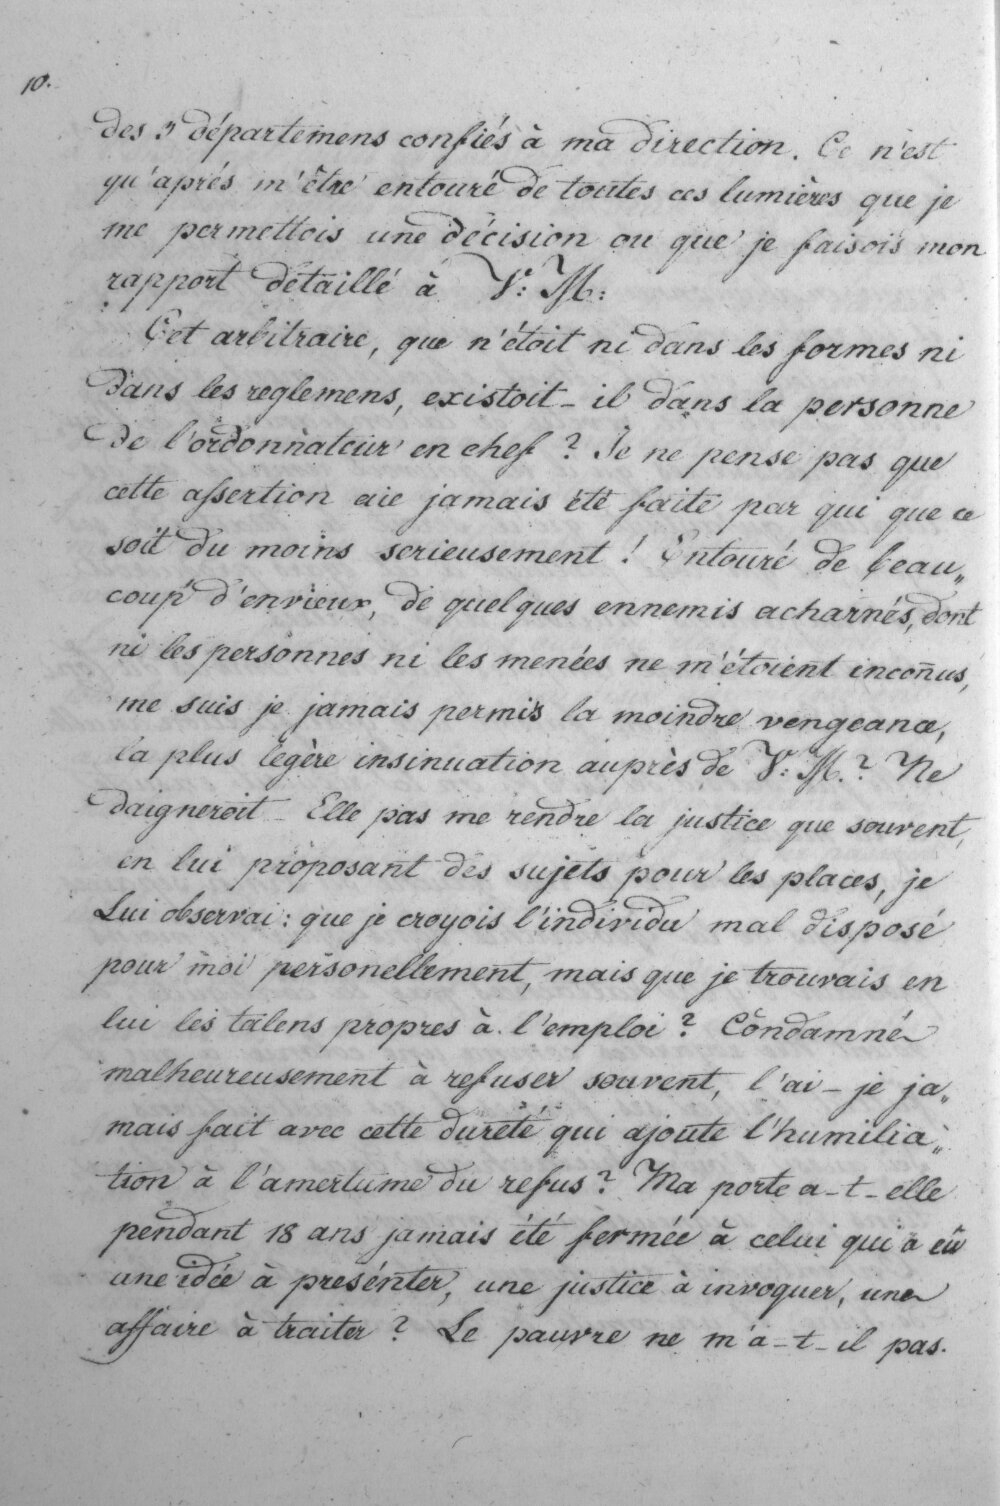 10.
des 3 départemens confiés à ma direction. Ce n'est
qu'aprés m'être entouré de toutes ces lumières que je
me permettois une décision ou que je faisois mon
rapport détaillé à V: M:
Cet arbitraire, que n'étoit ni dans les formes ni
dans les reglemens, existoit-il dans la personne
de l'ordonnateur en chef? Je ne pense pas que
cette assertion aie jamais été faite par qui que ce
soit du moins serieusement! Entouré de beau„
coup d'envieux, de quelques ennemis acharnés, dont
ni les personnes ni les menées ne m'étoient inconñus,
me suis je jamais permis la moindre vengeance,
la plus legère insinuation auprès de V: M.? Ne
daigneroit-Elle pas me rendre la justice que souvent,
en lui proposant des sujets pour les places, je
Lui observai: que je croyois l'individu mal disposé
pour moi personellement, mais que je trouvais en
lui les talens propres à l'emploi? Condamné
malheureusement à refuser souvent, l'ai-je ja„
mais fait avec cette dureté qui ajoute l'humilia„
tion à l'amertume du refus? Ma porte a-t-elle
pendant 18 ans jamais été fermée à celui qui a eû
une idée à présenter, une justice à invoquer, une
affaire à traiter? Le pauvre ne m'a-t-il pas.